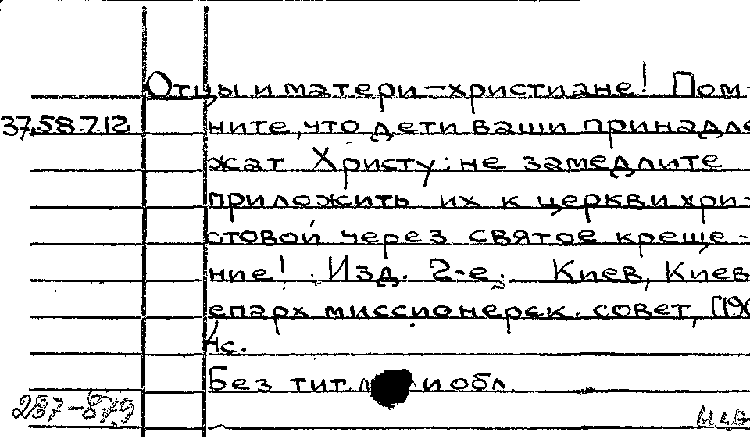 Отцы и матери-христиане! Пом-
37.58.712
ните, что дети ваши принадле
жат Христу: не замедлите
приложить их к церкви хри-
стовой через святое креще-
ние! Изд. 2-е. Киев, Киев
епарх миссионерск. совет, [190
Без тит. л и обл.
287-879